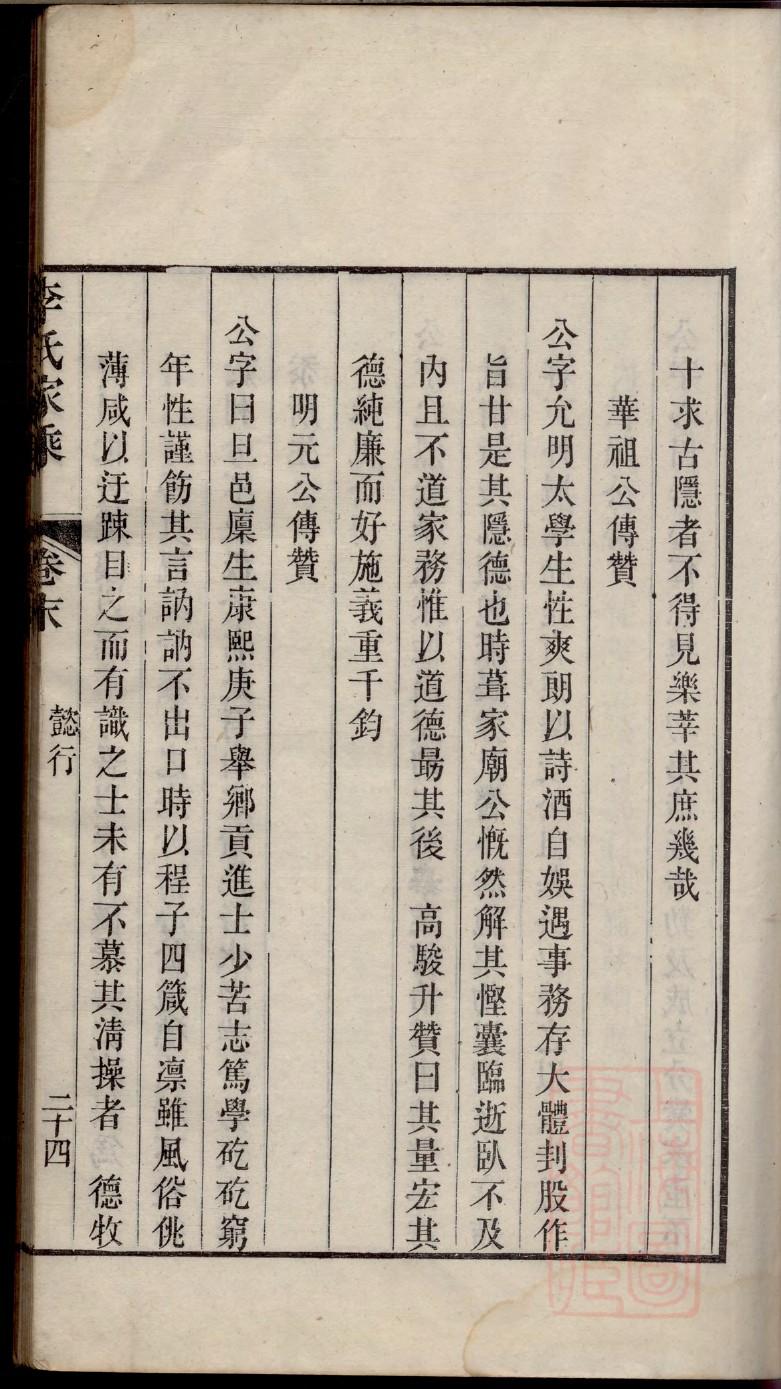 十求古隱者不得見樂莘其庶幾哉
華祖公傳贊
公字允明太學生性爽朗以詩酒自娛遇事務存大體刲股作
旨甘是其隱德也時葺家廟公慨然解其慳囊臨逝臥不及
內且不道家務惟以道德最其後　高駿升贊曰其量宏其
德純廉而好施義重千鈞
明元公傳贊
公字曰旦邑廩生康熙庚子舉鄉貢進士少苦志篤學矻矻窮
年性謹飭其言訥訥不出口時以程子四箴自凛雖風俗佻
薄咸以迂踈目之而有識之士未有不慕其淸操者　德牧
李氏家乘　卷末　懿行　二十四